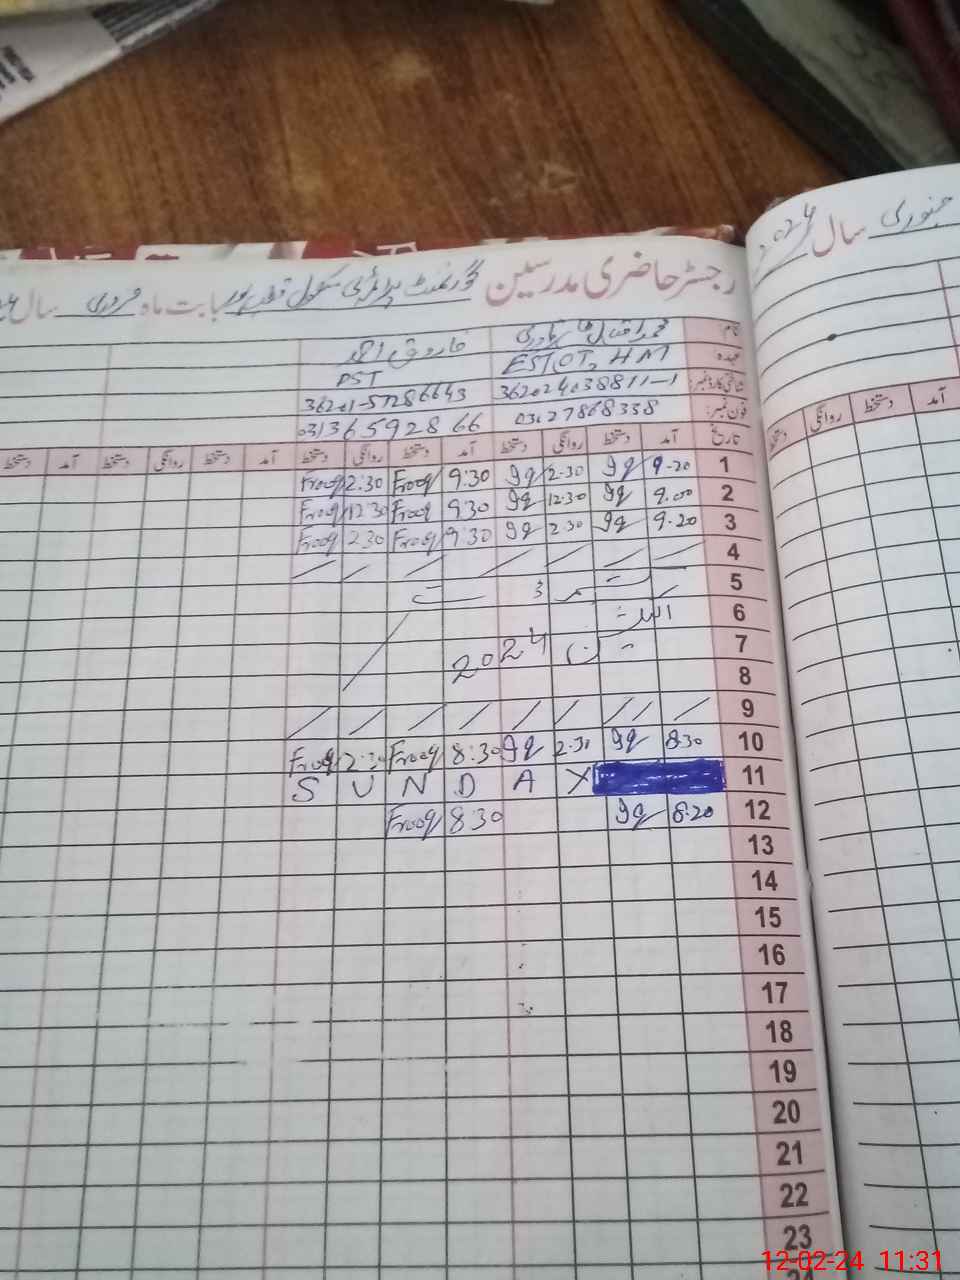 رجسٹر حاضری مدرسین گورنمنٹ پرائمری سکول بابت ماہ فروری سال
جنوری سال 2024
نام: محمد اقبال فاروق احمد
عہدہ: EST OT, HM PST
شناختی کارڈ نمبر: 362024038811-1 36201-57286643
فون نمبر: 03127868338 03136592866
تاریخ آمد دستخط روانگی دستخط آمد دستخط روانگی دستخط آمد دستخط روانگی دستخط آمد دستخط
آمد دستخط روانگی دستخط
1 9-20 Iq 2-30 Iq 9:30 Frooq 2:30 Frooq
2 9.00 Iq 12.30 Iq 9.30 Frooq 12.30 Frooq
3 9.20 Iq 2.30 Iq 9.30 Frooq 2.30 Frooq
4
5
6
7 2024
8
9
10 8.30 Iq 2.31 Iq 8:30 Frooq 2:30 Frooq
11 SUNDAY
12 8.20 Iq 8:30 Frooq
13
14
15
16
17
18
19
20
21
22
23
24
12-02-24 11:31